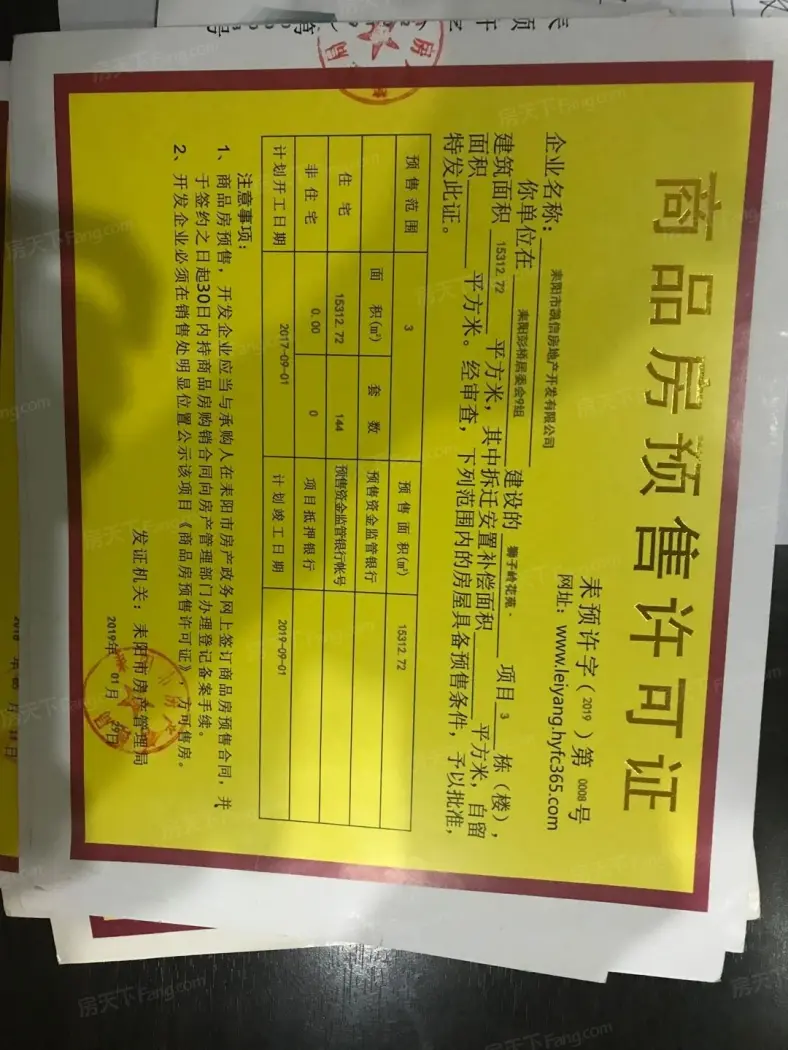 商品房预售许可证
耒预许字（2019）第0008号
网址：www.leiyang.hyfc365.com
企业名称：耒阳市凯信房地产开发有限公司
你单位在 耒阳彭桥居委会9组 建设的 狮子岭花苑· 项目 3 栋（楼），
建筑面积 15312.72 平方米，其中拆迁安置补偿面积 平方米，自留
面积 平方米。经审查，下列范围内的房屋具备预售条件，予以批准，
特发此证。
预售范围 3 预售面积(㎡) 15312.72
面积(㎡) 套数 预售资金监管银行
住宅 15312.72 144 预售资金监管银行帐号
非住宅 0.00 0 项目抵押银行
计划开工日期 2017-09-01 计划竣工日期 2019-09-01
注意事项：
1、商品房预售，开发企业应当与承购人在耒阳市房产政务网上签订商品房预售合同，并
于签约之日起30日内持商品房购销合同向房产管理部门办理登记备案手续。
2、开发企业必须在销售处明显位置公示该项目《商品房预售许可证》方可售房。
发证机关：耒阳市房产管理局
2019年 01月 29日
房天下Fang.com